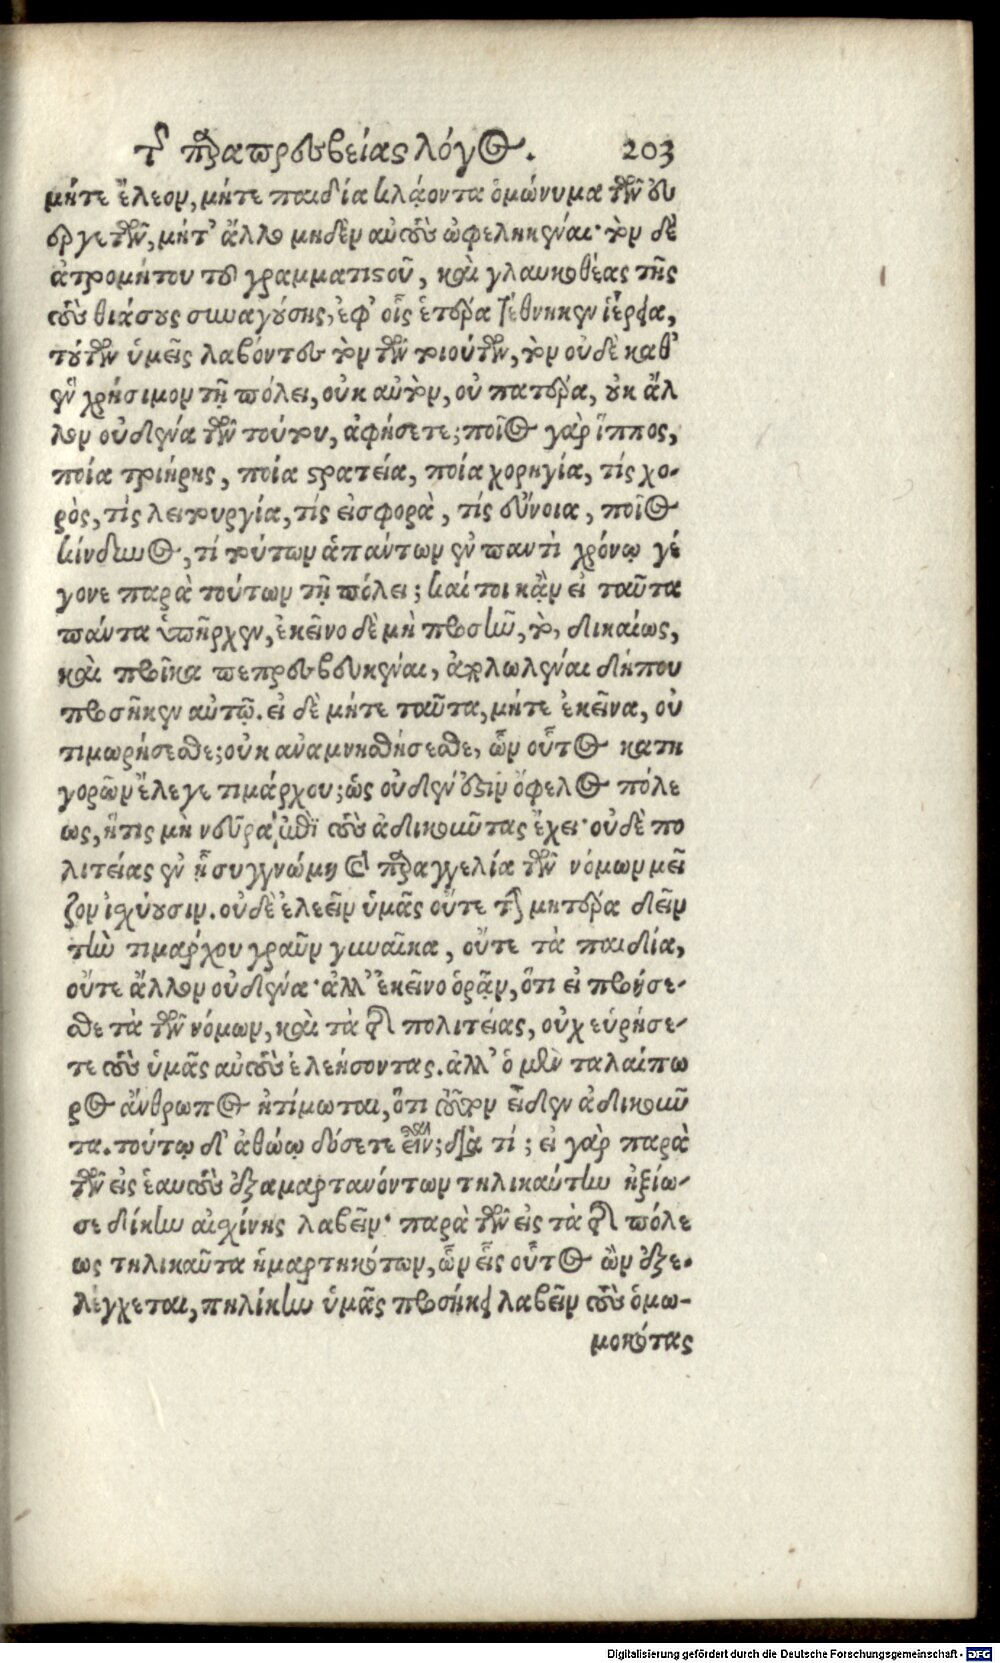 τῆς παραπρεσβείας λόγος. 203
μήτε ἔλεον, μήτε παιδία κλάοντα ὁμώνυμα τῶν εὐ
εργετῶν, μήτ' ἄλλο μηδὲν αὐτοὺς ὠφεληκέναι· τὸν δὲ
ἀτρομήτου τοῦ γραμματιστοῦ, καὶ γλαυκοθέας τῆς
τοὺς θιάσους συναγούσης, ἐφ' οἷς ἑτέρα τέθνηκεν ἱέρεια,
τοῦτον ὑμεῖς λαβόντες τὸν τῶν τοιούτων, τὸν οὐδὲ καθ'
ἓν χρήσιμον τῇ πόλει, οὐκ αὐτὸν, οὐ πατέρα, οὐκ ἄλ
λον οὐδένα τῶν τούτου, ἀφήσετε; ποῖος γὰρ ἵππος,
ποία τριήρης, ποία στρατεία, ποία χορηγία, τίς χο-
ρὸς, τίς λειτουργία, τίς εἰσφορὰ, τίς εὔνοια, ποῖος
κίνδυνος, τί τούτων ἁπάντων ἐν παντὶ χρόνῳ γέ
γονε παρὰ τούτων τῇ πόλει; καίτοι κἂν εἰ ταῦτα
πάντα ὑπῆρχεν, ἐκεῖνο δὲ μὴ προσῆν, τὸ, δικαίως,
καὶ προῖκα πεπρεσβευκέναι, ἀπολωλέναι δήπου
προσῆκεν αὐτῷ. εἰ δὲ μήτε ταῦτα, μήτε ἐκεῖνα, οὐ
τιμωρήσεσθε; οὐκ ἀναμνησθήσεσθε, ὧν οὗτος κατη
γορῶν ἔλεγε τιμάρχου; ὡς οὐδέν ἐστιν ὄφελος πόλε
ως, ἥτις μὴ νεῦρα ἐπὶ τοὺς ἀδικοῦντας ἔχει· οὐδὲ πο
λιτείας ἐν ᾗ συγγνώμη καὶ παραγγελία τῶν νόμων μεῖ
ζον ἰσχύουσιν. οὐδὲ ἐλεεῖν ὑμᾶς οὔτε τὴν μητέρα δεῖν
τὴν τιμάρχου γραῦν γυναῖκα, οὔτε τὰ παιδία,
οὔτε ἄλλον οὐδένα· ἀλλ' ἐκεῖνο ὁρᾷν, ὅτι εἰ προήσε-
σθε τὰ τῶν νόμων, καὶ τὰ τῆς πολιτείας, οὐχ εὑρήσε-
τε τοὺς ὑμᾶς αὐτοὺς ἐλεήσοντας. ἀλλ' ὁ μὲν ταλαίπω
ρος ἄνθρωπος ἠτίμωται, ὅτι τοῦτον εἶδεν ἀδικοῦν
τα. τούτῳ δ' ἀθώῳ δώσετε εἶναι; διὰ τί; εἰ γὰρ παρὰ
τῶν εἰς ἑαυτοὺς ἐξαμαρτανόντων τηλικαύτην ἠξίω-
σε δίκην αἰσχίνης λαβεῖν· παρὰ τῶν εἰς τὰ τῆς πόλε
ως τηλικαῦτα ἡμαρτηκότων, ὧν εἷς οὗτος ὢν ἐξε-
λέγχεται, πηλίκην ὑμᾶς προσήκει λαβεῖν τοὺς ὀμω-
μοκότας
Digitalisierung gefördert durch die Deutsche Forschungsgemeinschaft - DFG